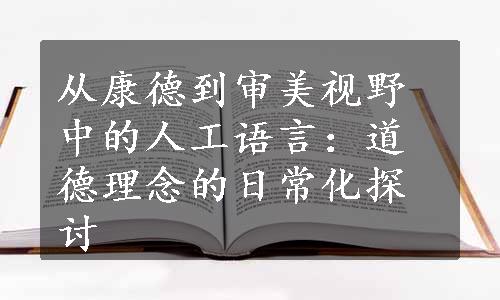 从康德到审美视野
中的人工语言：道
德理念的日常化探
讨